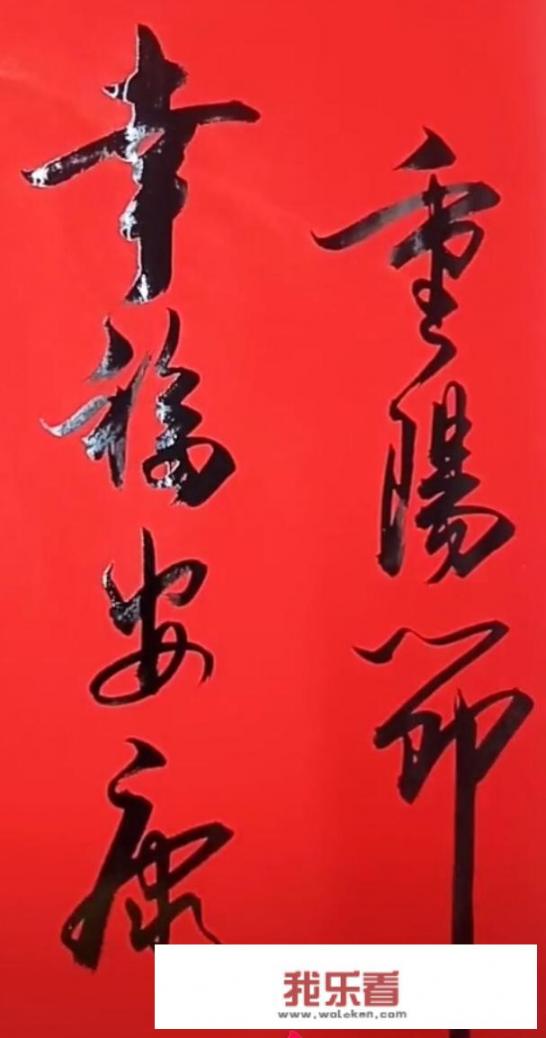 重陽節
幸福安康
我乐看
www.woleken.com